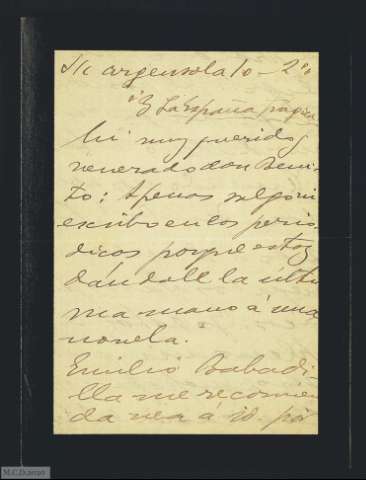 S/c argensola 10 - 2º
La España pagin
Mi muy querido y
venerado don Beni-
to: Apenas salgo ni
escribo en los perió-
dicos porque estoy
dándole la últi
ma mano á una
novela.
Emilio Bobadi-
lla me recomien
da vea á vd. por
M.C.D. 2018